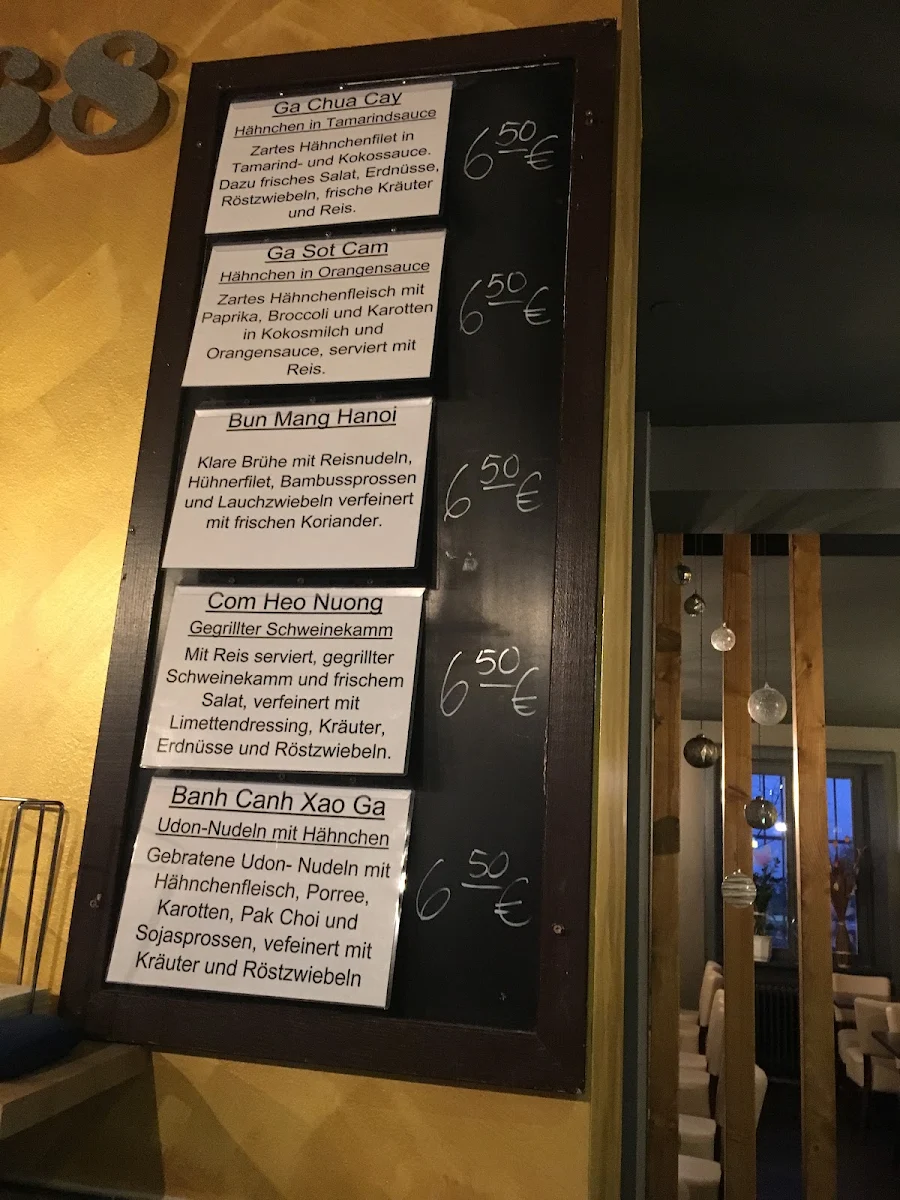 68
Ga Chua Cay
Hähnchen in Tamarindsauce
Zartes Hähnchenfilet in
Tamarind- und Kokossauce.
Dazu frisches Salat, Erdnüsse,
Röstzwiebeln, frische Kräuter
und Reis.
6 50 €
Ga Sot Cam
Hähnchen in Orangensauce
Zartes Hähnchenfleisch mit
Paprika, Broccoli und Karotten
in Kokosmilch und
Orangensauce, serviert mit
Reis.
6 50 €
Bun Mang Hanoi
Klare Brühe mit Reisnudeln,
Hühnerfilet, Bambussprossen
und Lauchzwiebeln verfeinert
mit frischen Koriander.
6 50 €
Com Heo Nuong
Gegrillter Schweinekamm
Mit Reis serviert, gegrillter
Schweinekamm und frischem
Salat, verfeinert mit
Limettendressing, Kräuter,
Erdnüsse und Röstzwiebeln.
6 50 €
Banh Canh Xao Ga
Udon-Nudeln mit Hähnchen
Gebratene Udon- Nudeln mit
Hähnchenfleisch, Porree,
Karotten, Pak Choi und
Sojasprossen, vefeinert mit
Kräuter und Röstzwiebeln
6 50 €